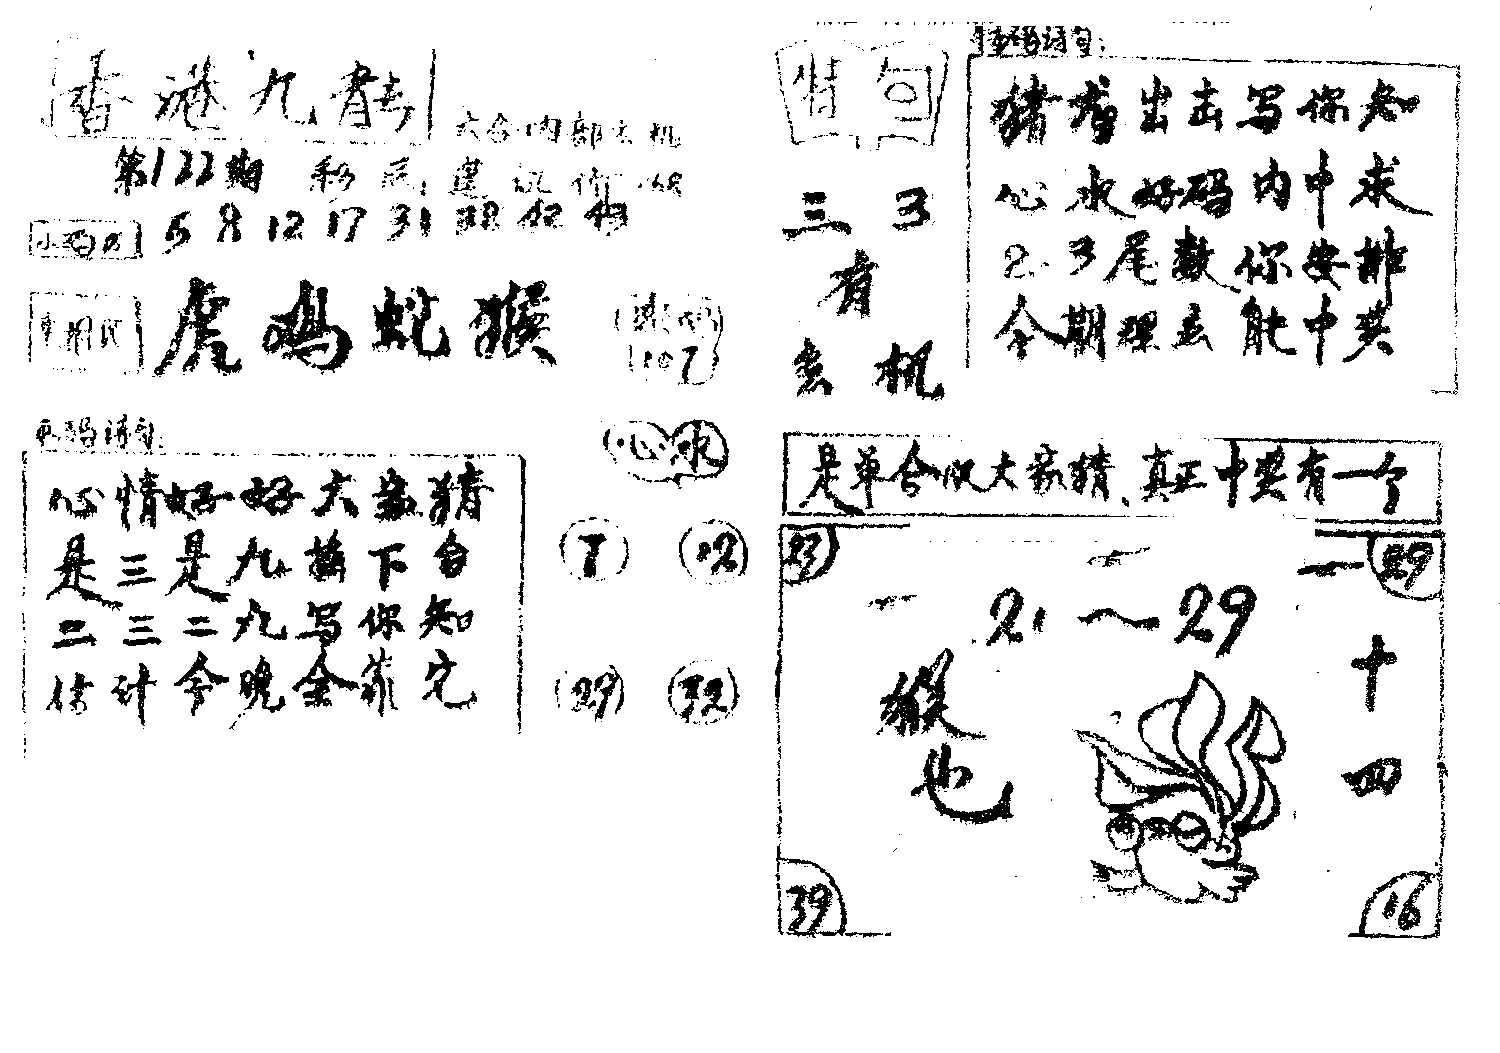 香港九龍
六合内部玄机
第122期
5 8 12 17 31 38 42 43
虎鸡蛇猴
心情好好大家猜
是三是九摘下台
二三二九写你知
估计今晚全靠它
心水
7 12
29 32
特句
猪 出击写你知
心水好码内中求
2.3尾数你安排
今期理玄能中奖
三 3
有
玄机
是单合收大家猜、真正中奖有一个
23 29
2.～29
猴也
十四
39 16